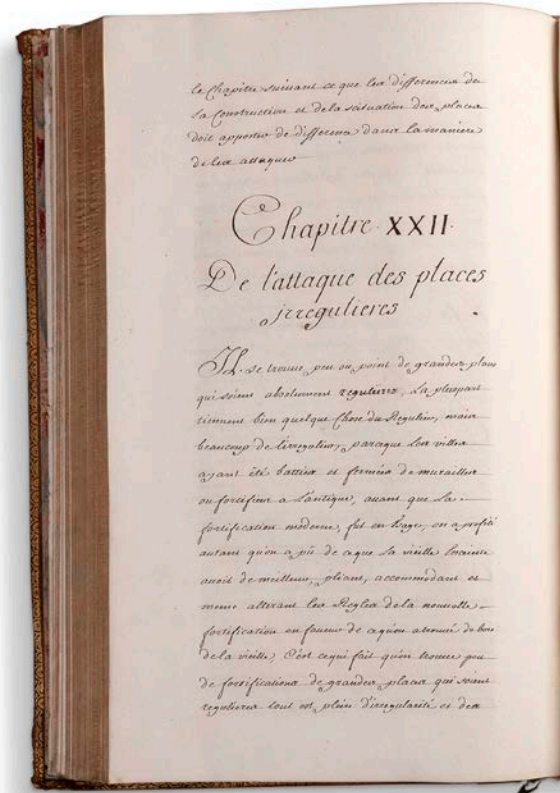 le Chapitre suivant ce que les differences de
la Construction et de la scituation des places
doit apporter de difference dans la maniere
de les attaquer
Chapitre XXII.
De l'attaque des places
irregulieres
Il se trouve peu ou point de grandes places
qui soient absolument regulieres, La pluspart
tiennent bien quelque Chose du Regulier, mais
beaucoup de l'irregulier, paraque les villes
ayant été batties et fermées de murailles
ou fortifiees a L'antique, avant que La
fortification moderne, fut en Usage, on a profité
autant qu'on a pû de ce que la vieille Enceinte
avoit de meilleur, pliant, accommodant et
meme alterant les Regles de la nouvelle
fortification en faveur de ce qu'on a trouvé de bon
de la vieille, C'est ce qui fait qu'on trouve peu
de fortifications de grandes places qui soient
regulieres tout est plein d'irregularité et des